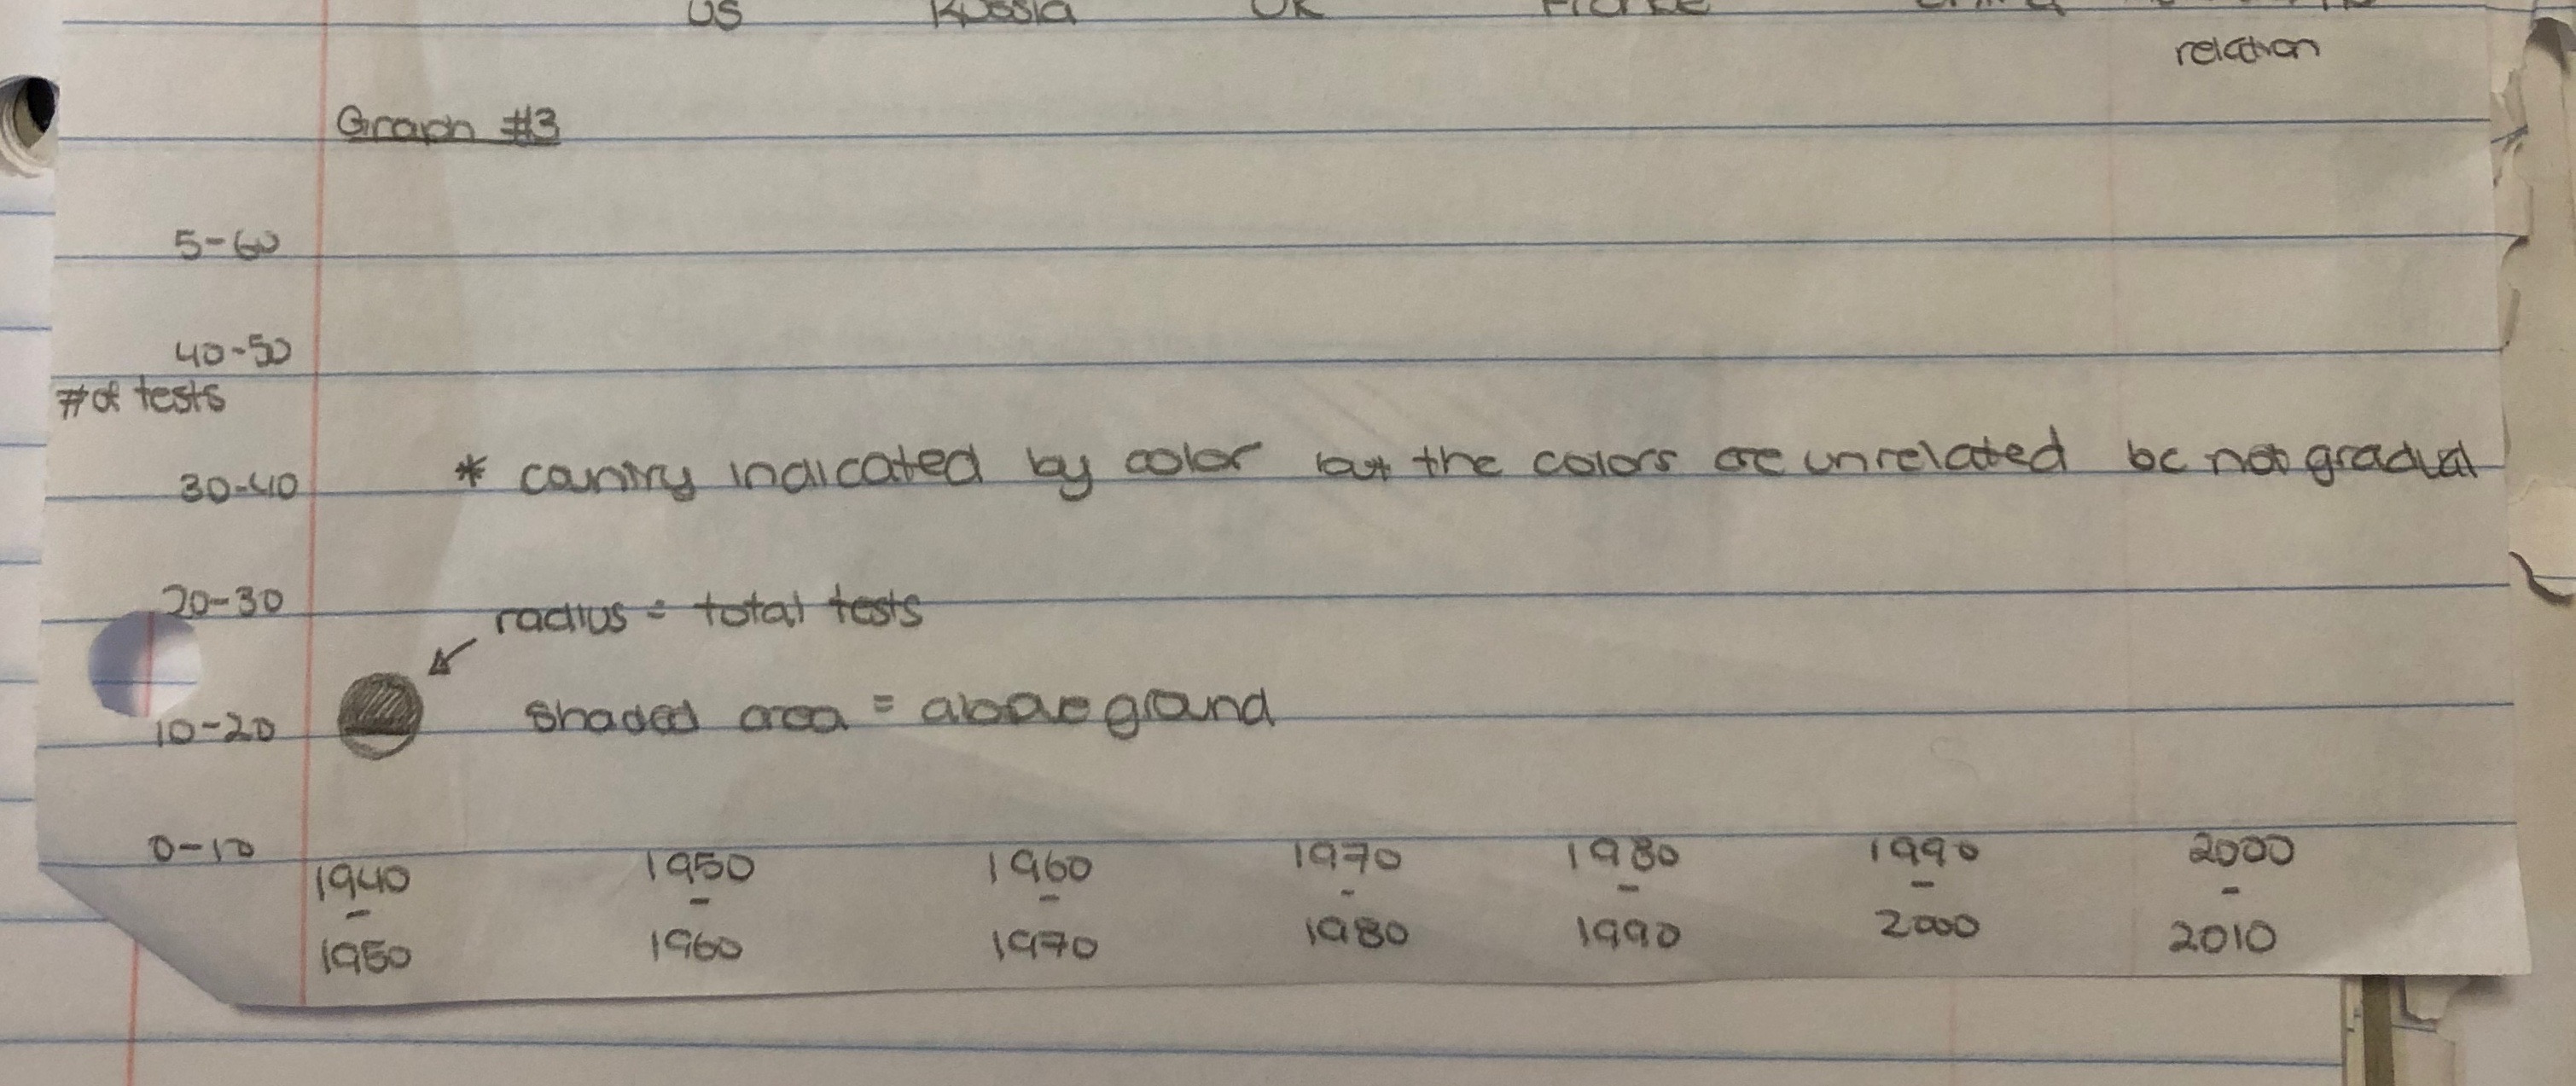 US Russia UK France China
relation
Graph #3
5-60
40-50
# of tests
30-40 * country indicated by color but the colors are unrelated bc not gradual
20-30
radius = total tests
10-20 shaded area = above ground
0-10
1940 1950 1960 1970 1980 1990 2000
- - - - - - -
1950 1960 1970 1980 1990 2000 2010